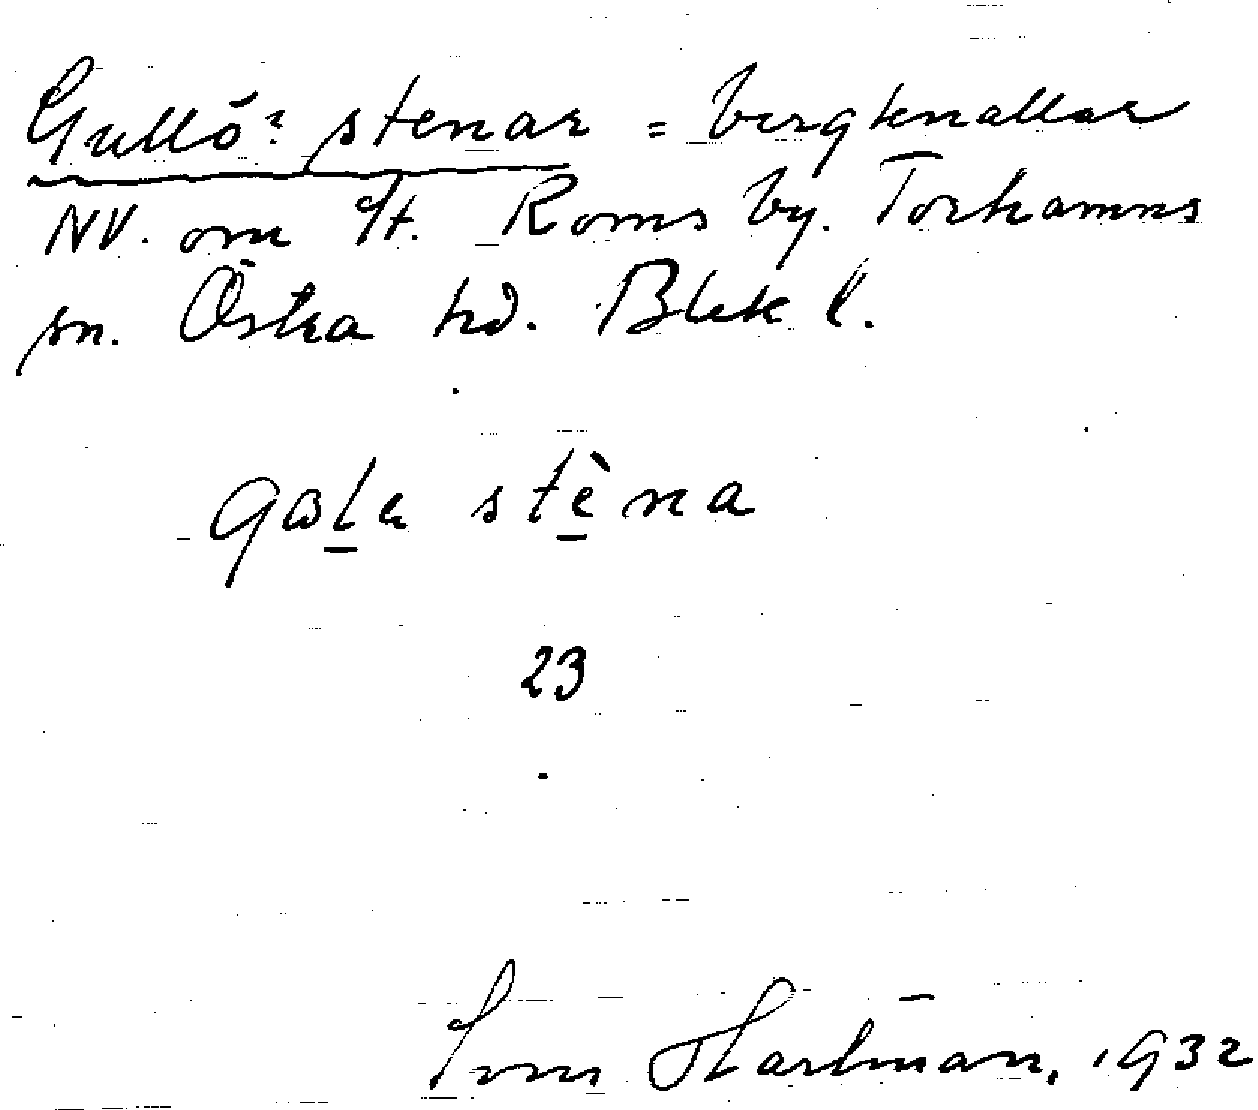 Gullö? stenar = bergknallar
NV. om St. Roms by. Torhamns
sn. Östra hd. Blek l.
stèna
23
Hartman, 1932